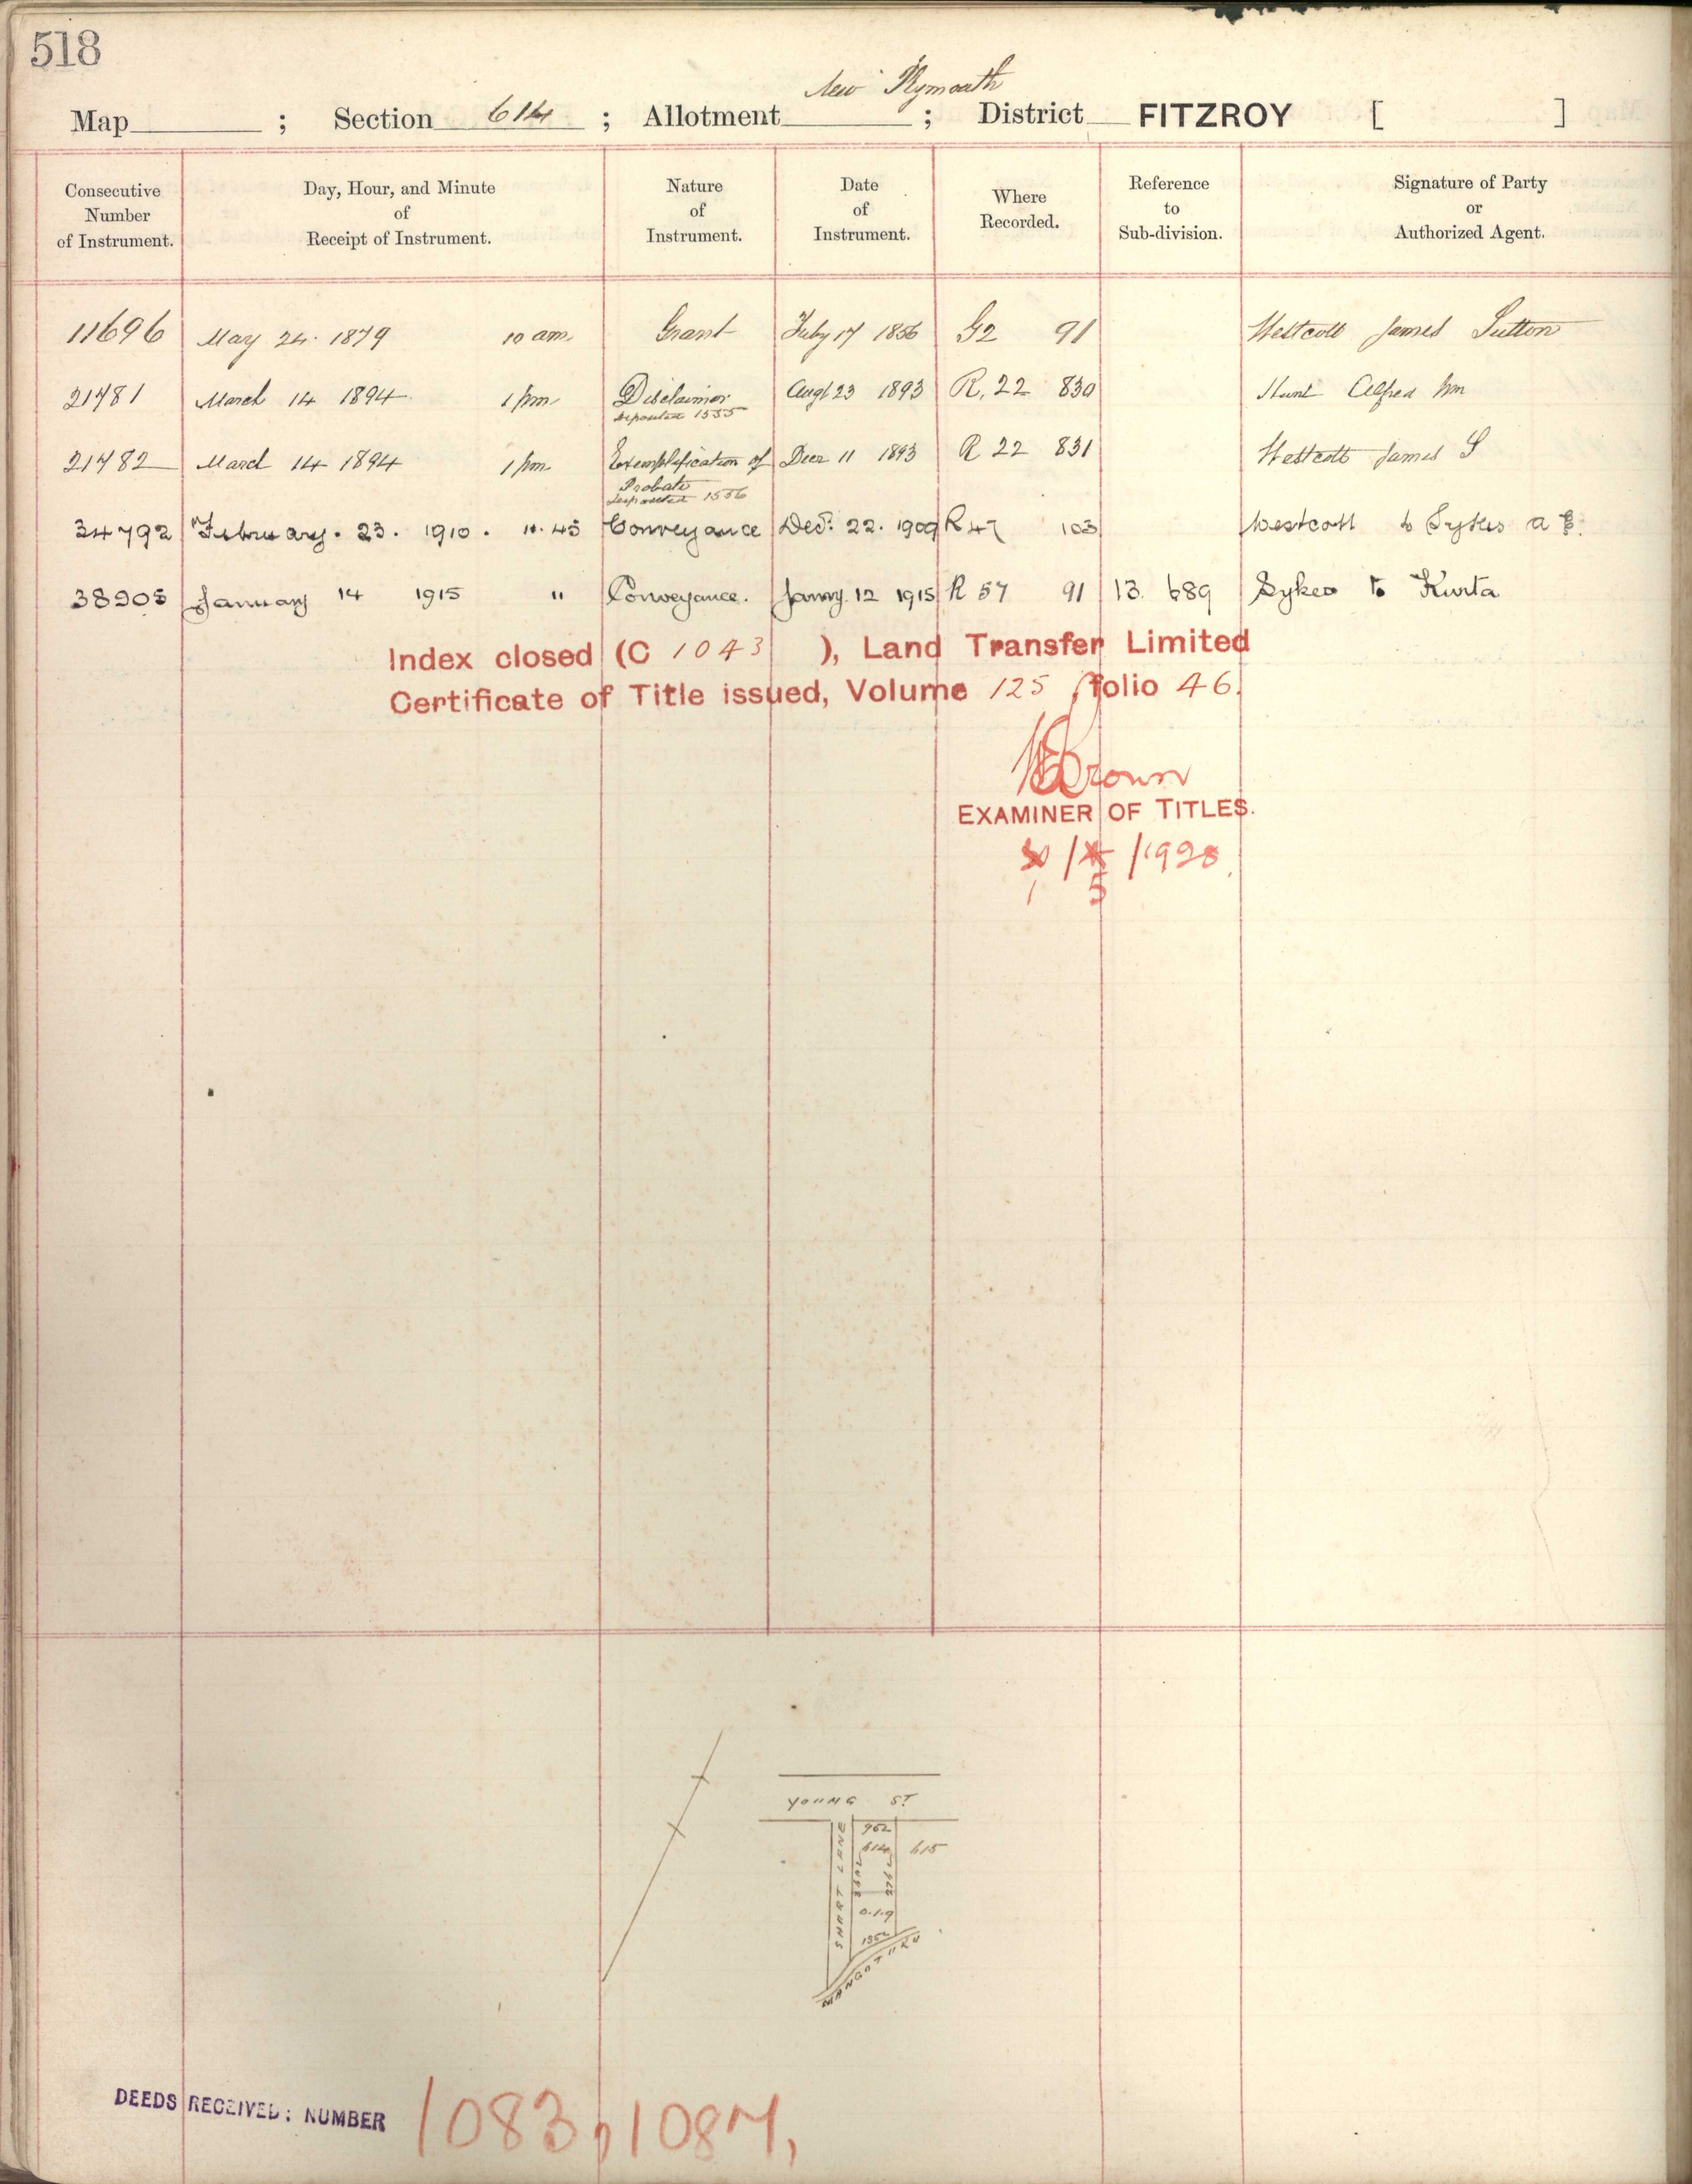 518
New Plymouth
Map ; Section 614 ; Allotment ; District FITZROY [ ]
Consecutive Number of Instrument. Day, Hour, and Minute of Receipt of Instrument. Nature of Instrument. Date of Instrument. Where Recorded. Reference to Sub-division. Signature of Party or Authorized Agent.
11696 May 24. 1879 10 am Grant Feby 17 1856 G2 91 Westcott James Sutton
21481 March 14 1894 1 pm Disclaimer Augt 23 1893 R. 22 830 Hunt Alfred Wm
deposited 1555
21482 March 14 1894 1 pm Exemplification of Decr 11 1893 R 22 831 Westcott James S
Probate
deposited 1556
34792 February. 23. 1910. 11.45 Conveyance Dec: 22. 1909 R 47 103 Westcott to Sykes
38905 January 14 1915 " Conveyance. Janry. 12 1915 R 57 91 13. 689 Sykes to Kurta
Index closed (C 1043 ), Land Transfer Limited
Certificate of Title issued, Volume 125, folio 46.
Brown
EXAMINER OF TITLES.
/ /1928
1 5
YOUNG ST
962
614 615
SMART LANE
0.1.9
1352
MANGOTUKU
DEEDS RECEIVED: NUMBER 1083, 1087,